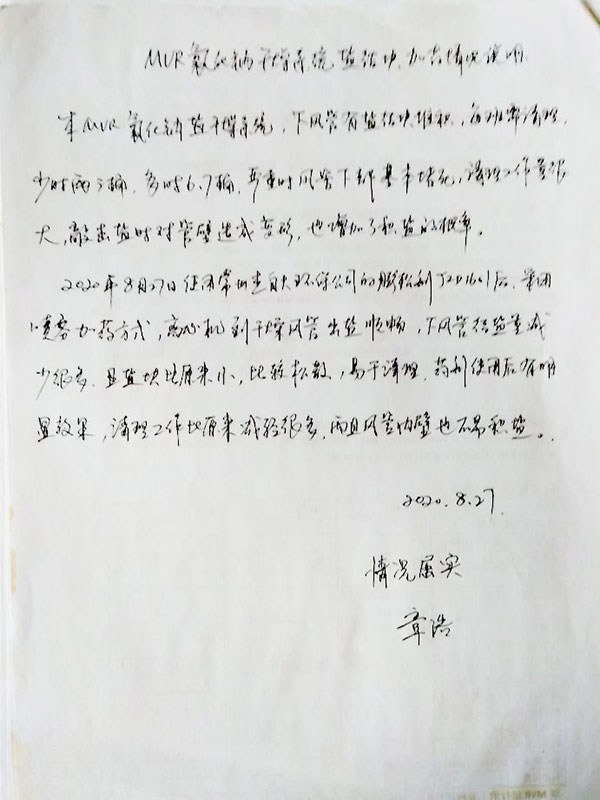 MVR氯化钠干燥系统盐结块加药情况说明
本MVR氯化钠盐干燥系统,下风管有盐结块堆积,每班需清理,
少时两三桶,多时6.7桶,严重时风管下部基本堵死,清理工作量很
大,敲击盐时对管壁造成变形,也增加了积盐的概率。
2020年8月27日使用常州 大环保公司的 松剂 后,采用
喷雾加药方式,离心机到干燥风管出盐顺畅,下风管结盐量减
少很多,且盐块比原来小,比较松散,易于清理,药剂使用后有明
显效果,清理工作比原来减轻很多,而且风管内壁也不易积盐。
2020.8.27
情况属实
章浩